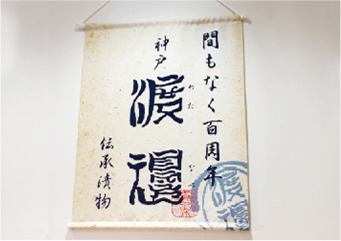 間もなく百周年
神戸
渡邊
わたなべ
伝承漬物
渡邊